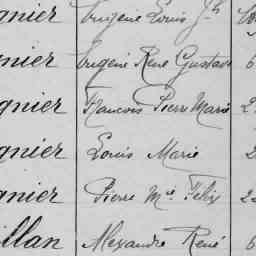 gnier Eugène Louis Jh
gnier Eugène René Gustave 6
gnier François Pierre Marie 2
gnier Louis Marie 2
gnier Pierre Me Félix 22
illan Alexandre René 6